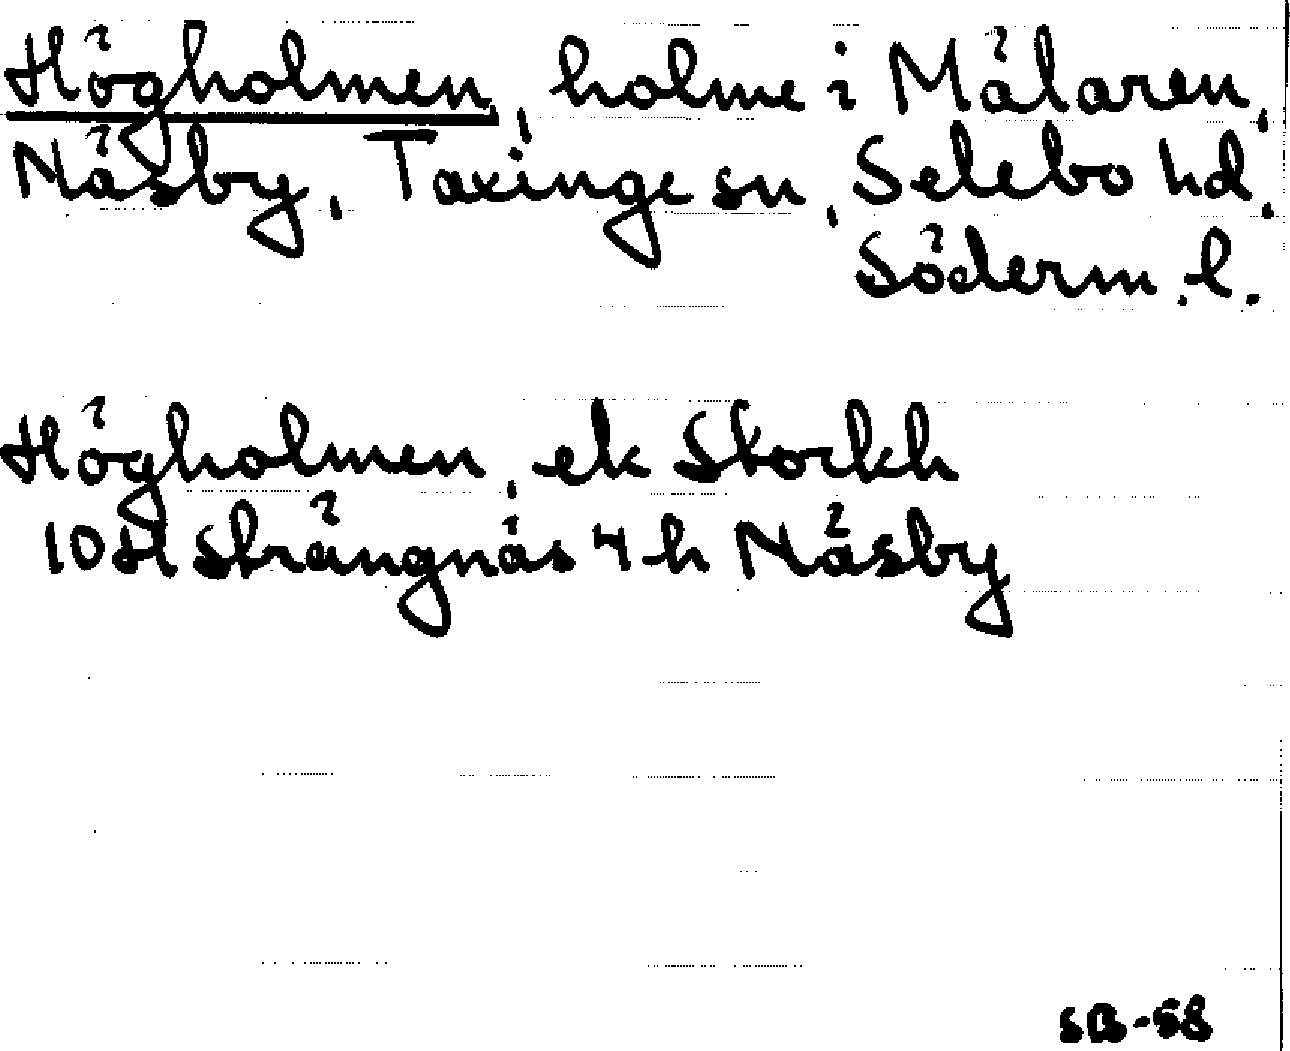 Högholmen, holme i Mälaren,
Näsby, Taxinge sn, Selebo hd,
Söderm.l.
Högholmen, ek Stockh
10SV Strängnäs 4h Näsby
SB-58